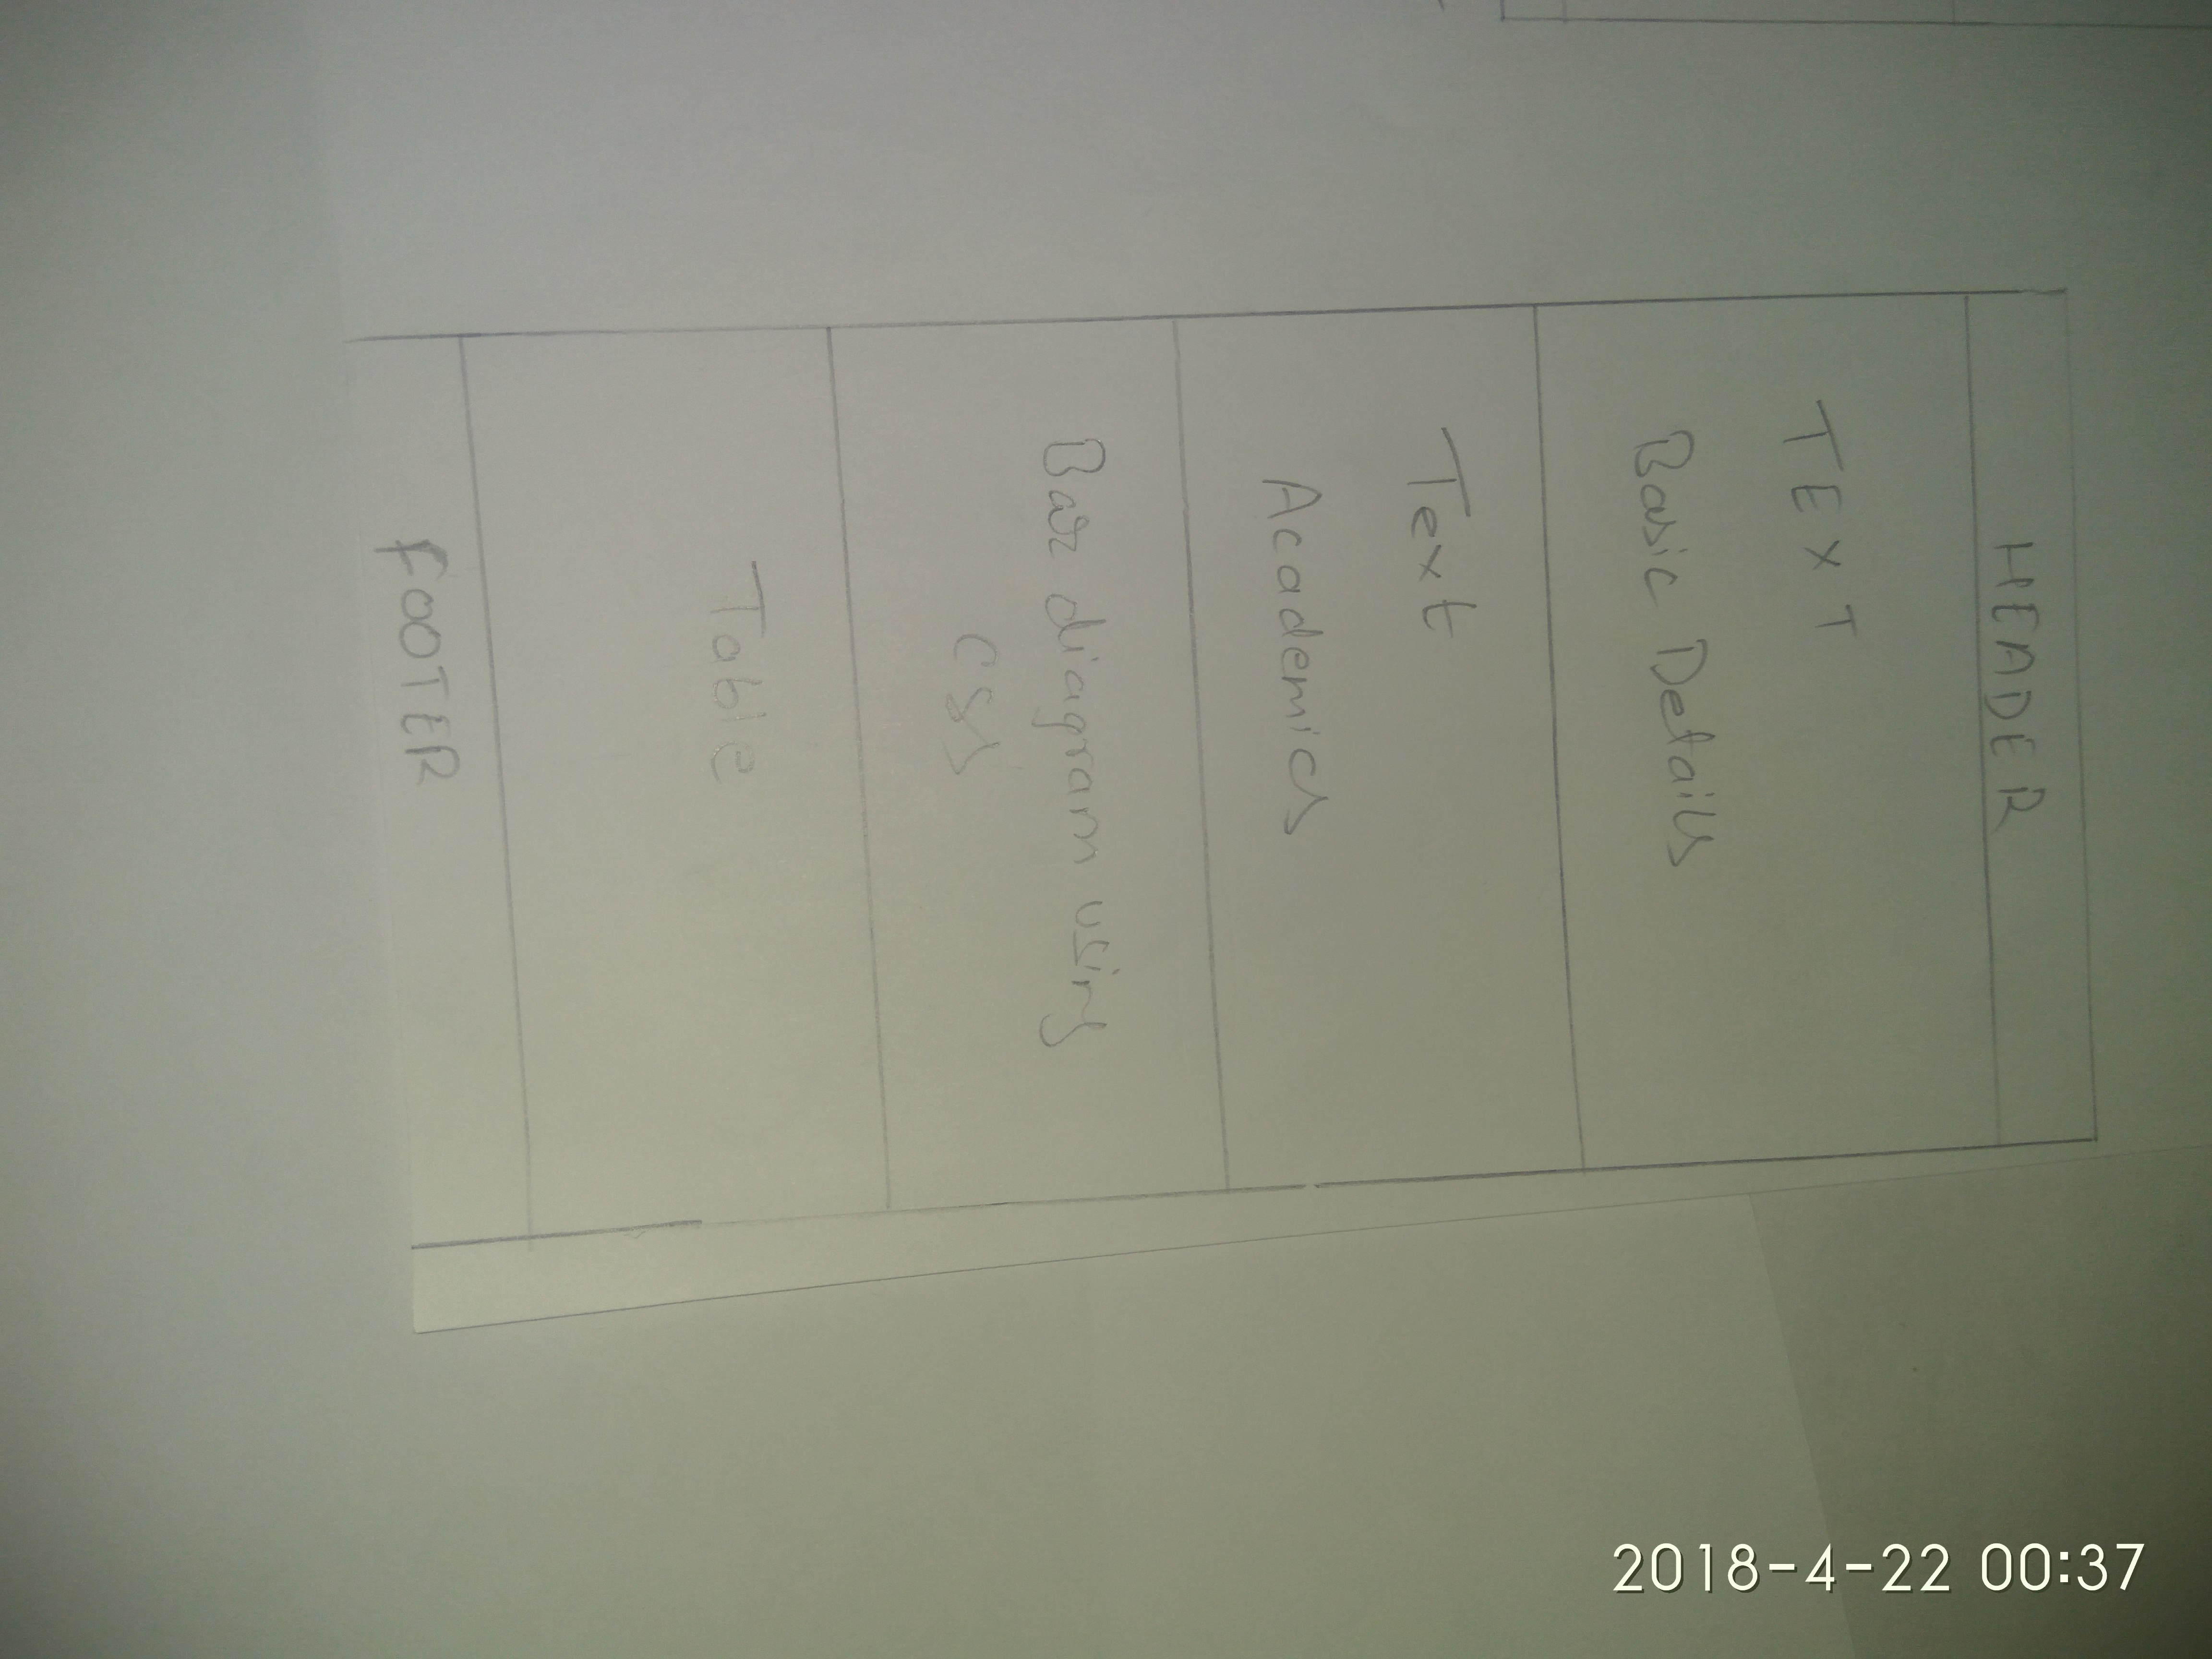 HEADER
TEXT
Basic Details
Text
Academics
Bar diagram using
CSS
Table
FOOTER
2018-4-22 00:37